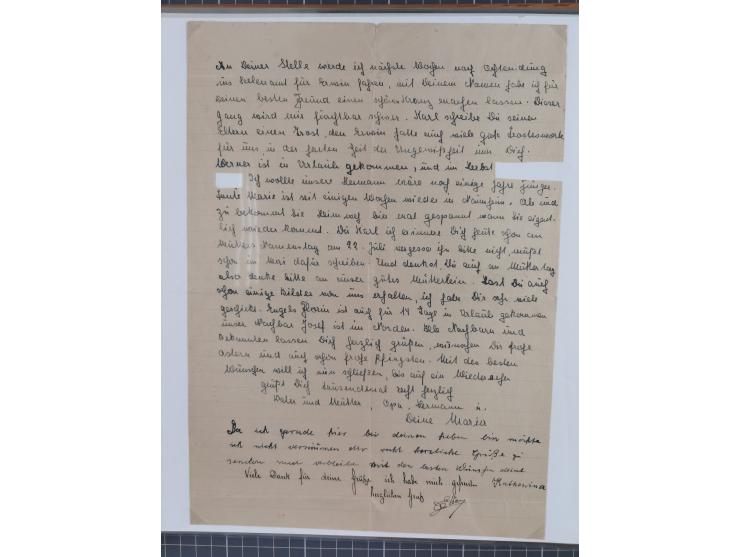 An Deiner Stelle werde ich nächste Woche nach Ochtendung
ins Seelenamt für Erwin fahren, mit Deinem Namen habe ich für
Deinen besten Freund einen schönen Kranz machen lassen. Dieser
Gang wird mir furchtbar schwer. Karl schreibe Du seinen
Eltern einen Trost, den Erwin hatte auch viele gute Trostesworte
für uns, in der harten Zeit der Ungewißheit um Dich.
Werner ist in Urlaub gekommen, und im Herbst
Ich wollte unser Hermann wäre noch einige Jahre jünger.
Tante Marie ist seit einigen Wochen wieder in Ab und
zu bekommt sie Heimweh bin mal gespannt wann sie eigent-
lich wieder kommt. Du Karl ich erinnere Dich heute schon an
Mutters Namenstag am 22. Juli vergesse ihn bitte nicht, mußt
schon im Mai dafür schreiben. Und denkst Du auch an Muttertag
also denke bitte an unser gutes Mütterlein. Hast Du auch
schon einige Bilder von uns erhalten, ich habe Dir sehr viele
geschickt. Engels ist auch für 14 Tage in Urlaub gekommen
unser Nachbar Josef ist im Norden. Alle Nachbarn und
Bekannten lassen Dich herzlich grüßen, wünschen Dir frohe
Ostern und auch schon frohe Pfingsten. Mit den besten
Wünschen will ich nun schließen, bis auf ein Wiedersehen
grüßt Dich tausendmal recht herzlich
Vater und Mutter, Opa, Hermann u.
Deine Maria
Da ich gerade hier bei deinen lieben bin möchte
ich nicht versäumen dir recht herzliche Grüße zu
senden und verbleibe mit den besten Wünschen deine
Viele Dank für deine Grüße ich habe mich gefreut Katharina
herzlichen Gruß